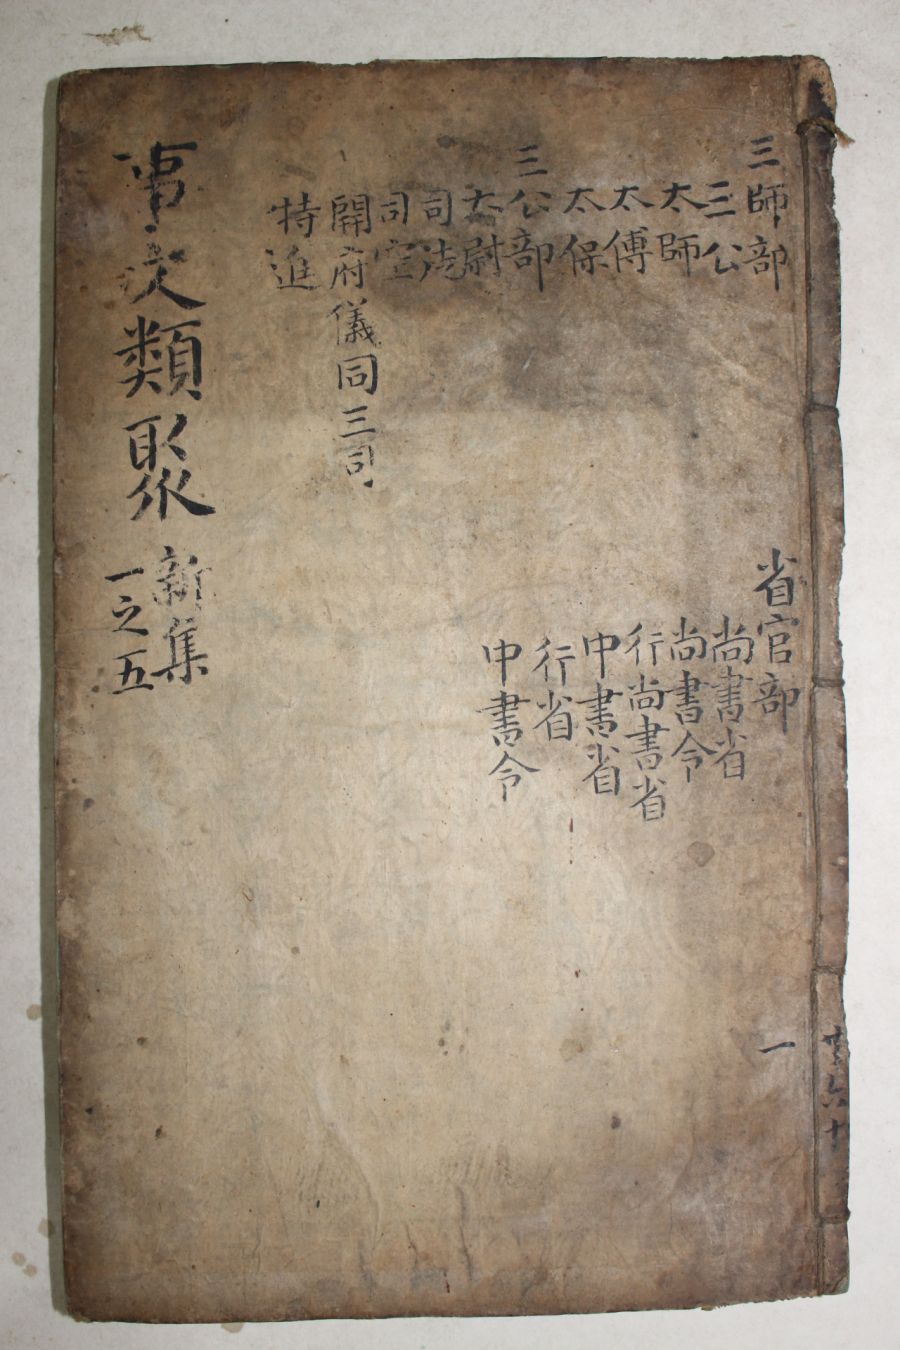 共六十
三師部
三公
太師
太傅
太保
三公部
太尉
司徒
司空
開府儀同三司
特進
省官部
尚書省
尚書令
行尚書省
中書省
行省
中書令
一
事文類聚
新集
一之五